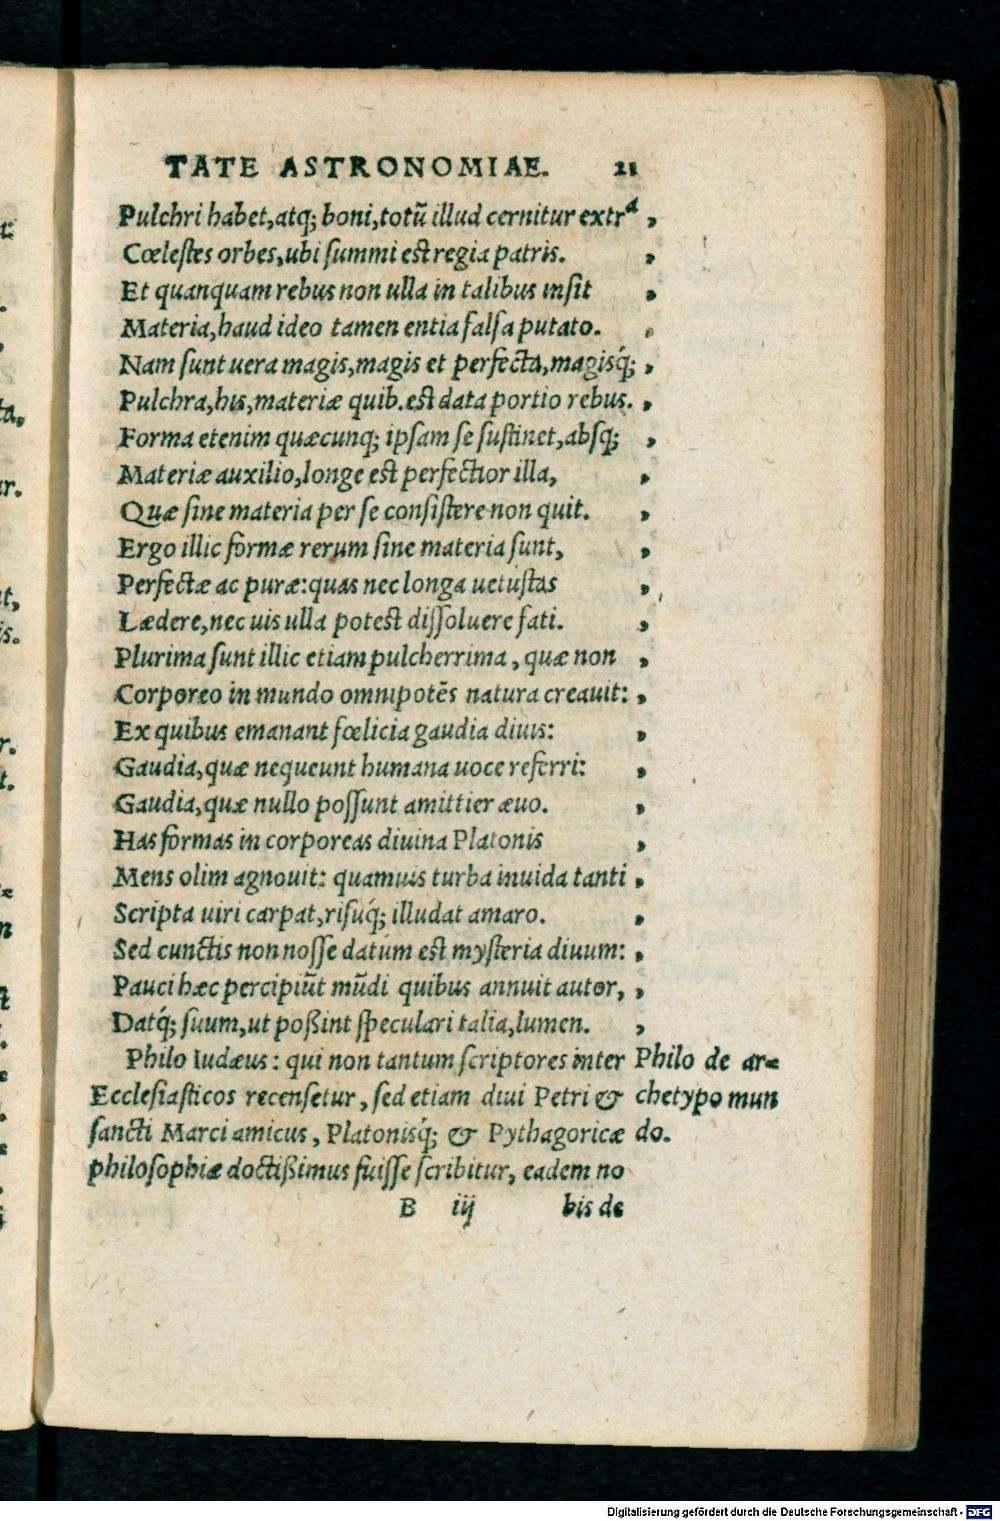 TATE ASTRONOMIAE. 21
Pulchri habet, atq; boni, totũ illud cernitur extrà ,
Cœlestes orbes, ubi summi est regia patris. ,
Et quanquam rebus non ulla in talibus insit ,
Materia, haud ideo tamen entia falsa putato. ,
Nam sunt uera magis, magis et perfecta, magisq́; ,
Pulchra, his, materiæ quib. est data portio rebus. ,
Forma etenim quæcunq; ipsam se sustinet, absq; ,
Materiæ auxilio, longe est perfectior illa, ,
Quæ sine materia per se consistere non quit. ,
Ergo illic formæ rerum sine materia sunt, ,
Perfectæ ac puræ: quas nec longa uetustas ,
Lædere, nec uis ulla potest dissoluere fati. ,
Plurima sunt illic etiam pulcherrima, quæ non ,
Corporeo in mundo omnipotẽs natura creauit: ,
Ex quibus emanant fœlicia gaudia diuis: ,
Gaudia, quæ nequeunt humana uoce referri: ,
Gaudia, quæ nullo possunt amittier æuo. ,
Has formas in corporeas diuina Platonis ,
Mens olim agnouit: quamuis turba inuida tanti ,
Scripta uiri carpat, risuq́; illudat amaro. ,
Sed cunctis non nosse datum est mysteria diuum: ,
Pauci hæc percipiũt mũdi quibus annuit autor, ,
Datq́; suum, ut poßint speculari talia, lumen. ,
Philo Iudæus: qui non tantum scriptores inter
Ecclesiasticos recensetur, sed etiam diui Petri &
sancti Marci amicus, Platonisq́; & Pythagoricæ
philosophiæ doctißimus fuisse scribitur, eadem no
Philo de ar=
chetypo mun
do.
B iij bis de
Digitalisierung gefördert durch die Deutsche Forschungsgemeinschaft - DFG